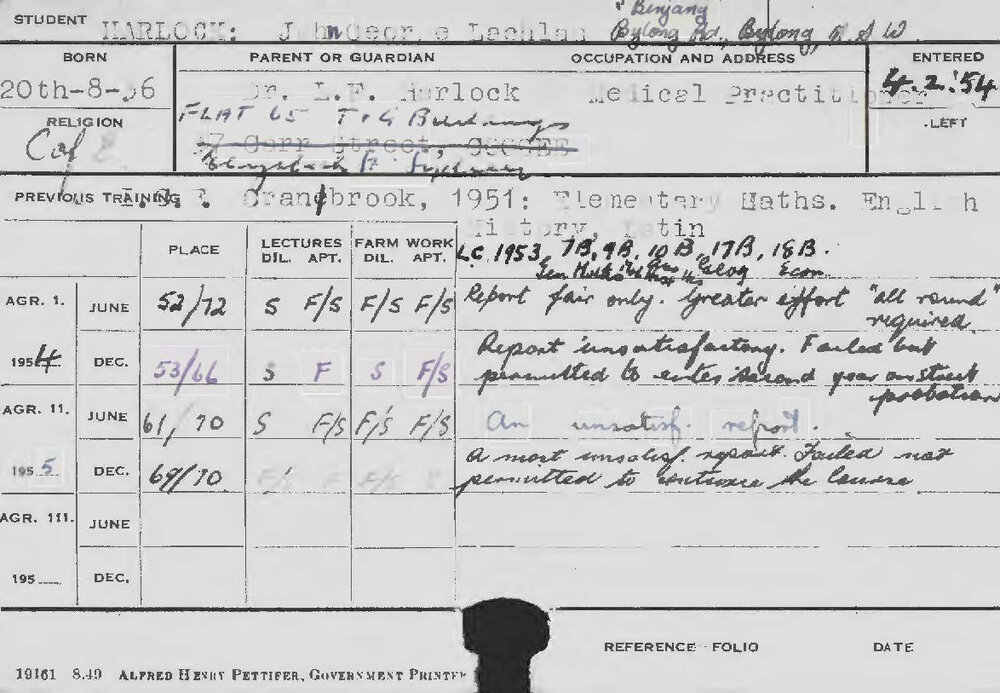 "Binjang
STUDENT HARLOCK: John George Lachlan Bylong Rd, Bylong, N.S.W.
BORN PARENT OR GUARDIAN OCCUPATION AND ADDRESS ENTERED
20th-8-36 Dr. L.F. Harlock Medical Practitioner 4.2.'54
RELIGION FLAT 65 T & G Buildings LEFT
C of E Street, COOGEE
Elizabeth St Sydney
PREVIOUS TRAINING Cranbrook, 1951: Elementary Maths. English
History, Latin
PLACE LECTURES FARM WORK L.C. 1953, 7B, 9B, 10B, 17B, 18B.
DIL. APT. DIL. APT. Gen Maths Geog Econ
AGR. I. JUNE 52/72 S F/S F/S F/S Report fair only. Greater effort "all round"
required.
1954 DEC. 53/66 S F S F/S Report unsatisfactory. Failed but
permitted to enter second year on strict
probation
AGR. II. JUNE 61/70 S F/S F/S F/S An unsatisf. report.
1955 DEC. 69/70 F/S F F/S A most unsatisf. report. Failed not
permitted to continue the course
AGR. III. JUNE
195 DEC.
REFERENCE FOLIO DATE
19161 8.49 ALFRED HENRY PETTIFER, GOVERNMENT PRINTER